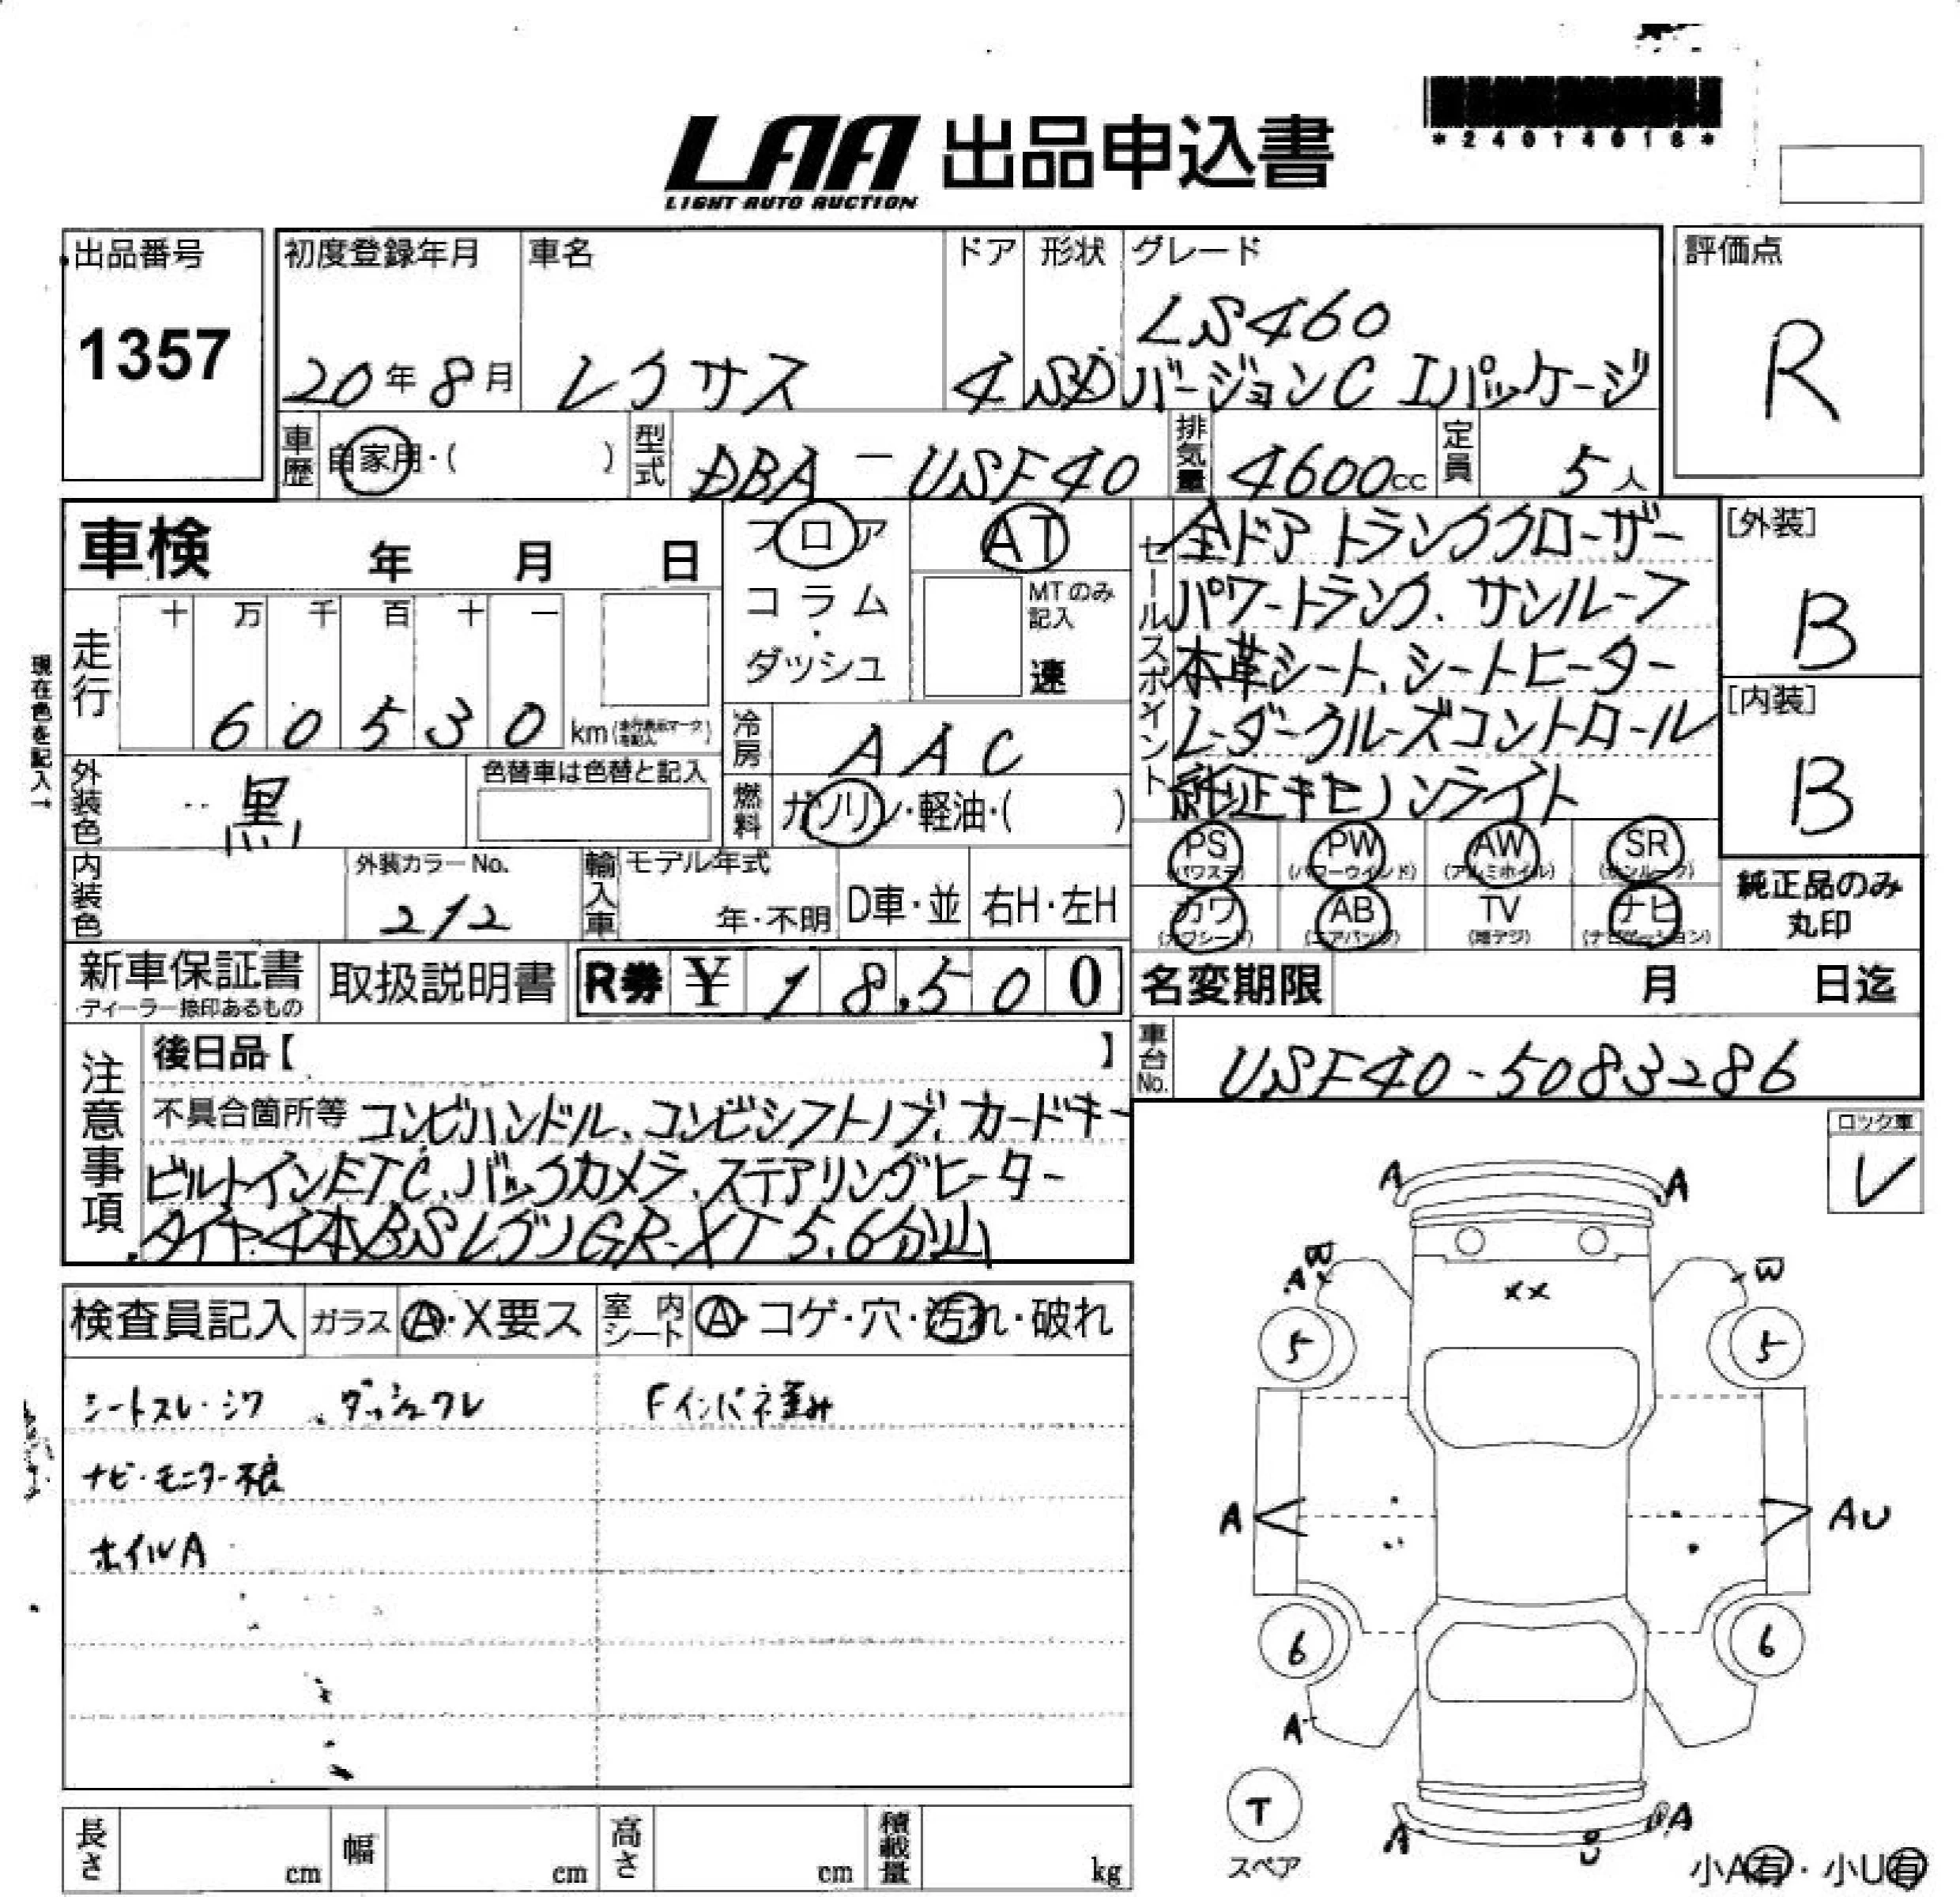 *24014016*
LAA 出品申込書
LIGHT AUTO AUCTION
出品番号 初度登録年月 車名 ドア 形状 グレード 評価点
1357 20年8月 レクサス 4 SD LS460 R
バージョンC Iパッケージ
車歴 自家用・( ) 型式 DBA-USF40 排気量 4600cc 定員 5人
車検 年 月 日 フロア AT
コラム・ダッシュ MTのみ記入 速
セールスポイント 全ドアトランククローザー
パワートランク、サンルーフ
本革シート、シートヒーター
レーダークルーズコントロール
純正キセノンライト
[外装] B
[内装] B
現在色を記入→
走行 十 万 千 百 十 一
60530 km(走行表示マークを記入)
冷房 AAC
外装色 黒 色替車は色替と記入
燃料 ガソリン・軽油・( )
PS (パワステ) PW (パワーウインド) AW (アルミホイル) SR (サンルーフ)
カワ (カワシート) AB (エアバッグ) TV (地デジ) ナビ (ナビゲーション)
純正品のみ丸印
内装色 外装カラーNo. 212 輸入車 モデル年式 年・不明 D車・並 右H・左H
新車保証書 ディーラー捺印あるもの 取扱説明書 R券 ¥18,500 名変期限 月 日迄
車台No. USF40-5083286
注意事項 後日品【 】
不具合箇所等 コンビハンドル、コンビシフトノブ、カードキー
ビルトインETC、バックカメラ、ステアリングヒーター
タイヤ4本BSレグノGR-XT 5.6分山
ロック車 レ
検査員記入 ガラス A・X要ス 室内シート A・コゲ・穴・汚れ・破れ
シートスレ・シワ 、ダッシュワレ Fインパネ歪み
ナビ・モニター不良
ホイルA
A A
A B B
XX
5 5
A AU
6 6
A
T
スペア
A U A
小A有・小U有
長さ cm 幅 cm 高さ cm 積載量 kg